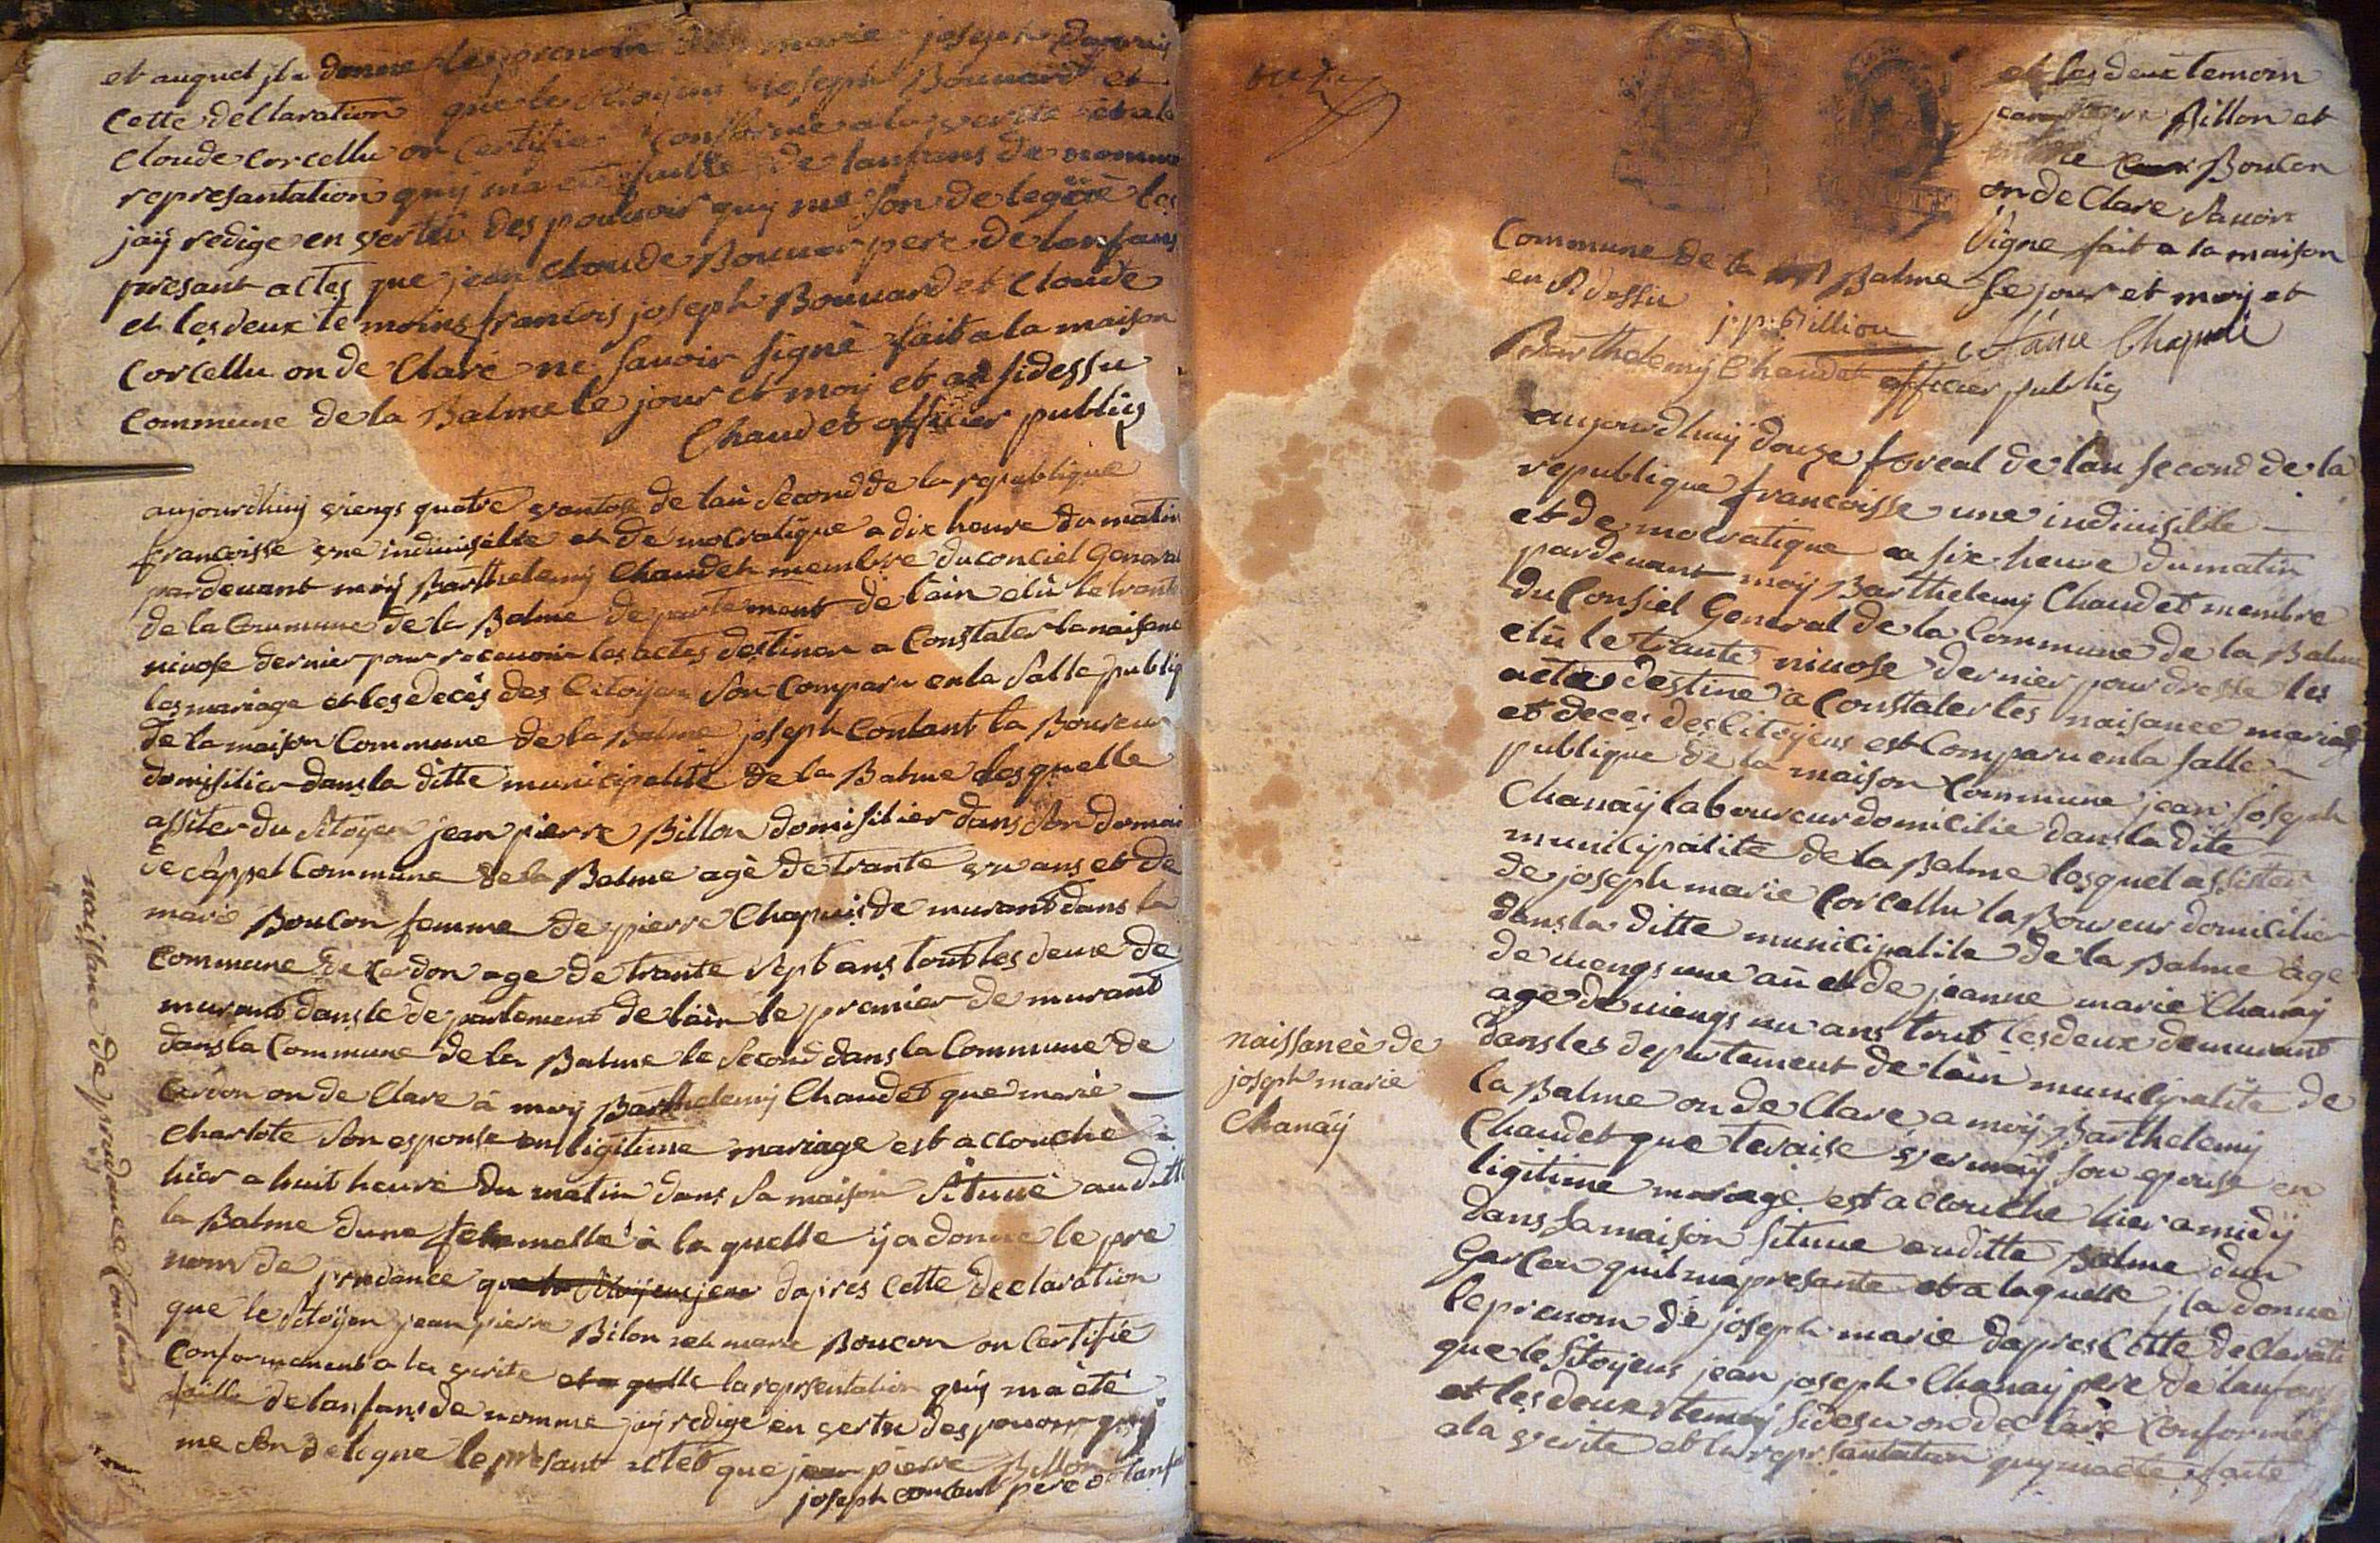 et auquel jl a donne les prenom marie joseph dapres
cette declaration que le sitoyens joseph Bouuard et
claude corcellu on certifie conforme a la verite et a la
represantation quij ma ete faitte de lanfans de nomme
jaij redige en vertu des pouuoir quij me son delegúé les
presant actes que jean claude Bouuar pere de lanfans
et les deux temoins francois joseph Bouuard et claude
corcellu on de claré ne sauoir signè fait a la maison
commune de la Balme le jour et moij et an sidessu
Chaudet officier publiq
aujourdhuij viengs quatre vantose de lan second de la republique
francoisse vne indiuisible et de mocratique a dix heure du matin
pardeuant moij Barthelemij Chaudet membre du conciel General
de la Commune de la Balme departement de lain elu le trante
niuose dernier pour receuoir les actes destiner a Constater la naisance
les mariage et les decès des Citoyen son comparu en la salle publiq
de la maison Commune de la Balme joseph contant la Boureur
domisilier dans la ditte municipalité de la Balme lesquelle
assiter du sitoyen jean pierre Billon domisilier dans son domai
de cappel Commune de la Balme agè de trante vn ans et de
marie Boucon femme de pierre Chapuis de murant dans la
commune de Cerdon age de trante sept ans tout les deux de
murant dans le departement de lain le premier de murant
dans la Commune de la Balme le second dans la Commune de
Cerdon on de Clare à moij Barthelemij Chaudet que marie
charlote son esponse en ligitime mariage est accouche
hier a huit heure du matin dans sa maison situuè au ditte
la Balme dune femelle à la quelle ij a donne le pre
nom de prudance que le sitoijens jean dapres cette declaration
que le sitoijen jean pierre Bilon et marie Boucon on certifié
conformement a la verite et a quelle la reprsentation quij ma ètè
faitte de lanfans de nomme jaij redige en vertu des pouuoir quij
me son deligue le presant actes que jean pierre Billon
joseph contant pere de lanfa
naissane de prudance Contant
et les deux temoin
jean pierre Billon et
marie Boucon
on de Clare sauoir
signe fait a la maison
Commune de la Balme le jour et moij et
en si dessu
j. p. Billion
Chapuis
Barthelemij Chaudet officier publiq
aujourdhuij douze floreal de lan second de la
republique francoisse une indiuisible
et de mocratique a six heure du matin
pardeuant moij Barthelemij Chaudet membre
du Consiel General de la Commune de la Balme
elù le trante niuose dernier pour dresse les
actes destine a Constater les naisance mariage
et deces des Citoyens est Comparu en la salle
publique de la maison Commune jean joseph
Chanaÿ laboureur domicilie dans la dite
municipalite de la Balme losquel assister
de joseph marie Corcellu la Boureur domicilier
dans la ditte municipalite de la Balme age
de viengs une an et de jeanne marie Chanaij
age de viengs un ans tout les deux demurant
dans les departement de lain municipalite de
la Balme on de Clare a moij Barthelemij
Chaudet que teraise vermaij son epouse en
ligitime mariage est accouche hier a midij
dans sa maison situue auditte Balme dun
Garcon quil ma presante et a laquelle jl a donne
le prenom de joseph marie dapres Cette declarati
que le sitoijens jean joseph Chanaij pere de lanfans
et les deux temoij sidesu on declare conformes
a la verite et la represantation quij ma ete faite
naissance de
joseph marie
Chanaÿ